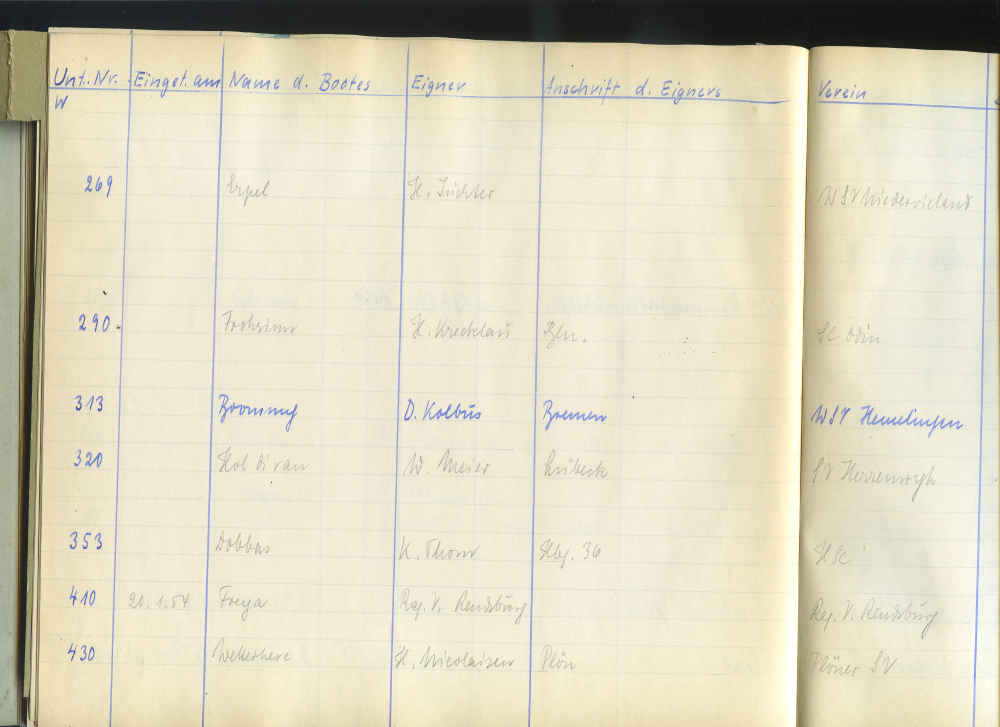 Unt. Nr. Einget. am Name d. Bootes Eigner Anschrift d. Eigners Verein
W
269 Erpel H. Lüchter WSV Niedervieland
290 Frohsinn H. Krecklau Bln. SC Odin
313 Brommy D. Kolbus Bremen WSV Hemelingen
320 Hol di ran W. Meier Lübeck SV Herrenwyk
353 Dobbas K. Thom Hbg. 36 HSC
410 20.1.54 Freya Reg. V. Rendsburg Reg. V. Rendsburg
430 Wetterhexe H. Nicolaisen Plön Plöner SV